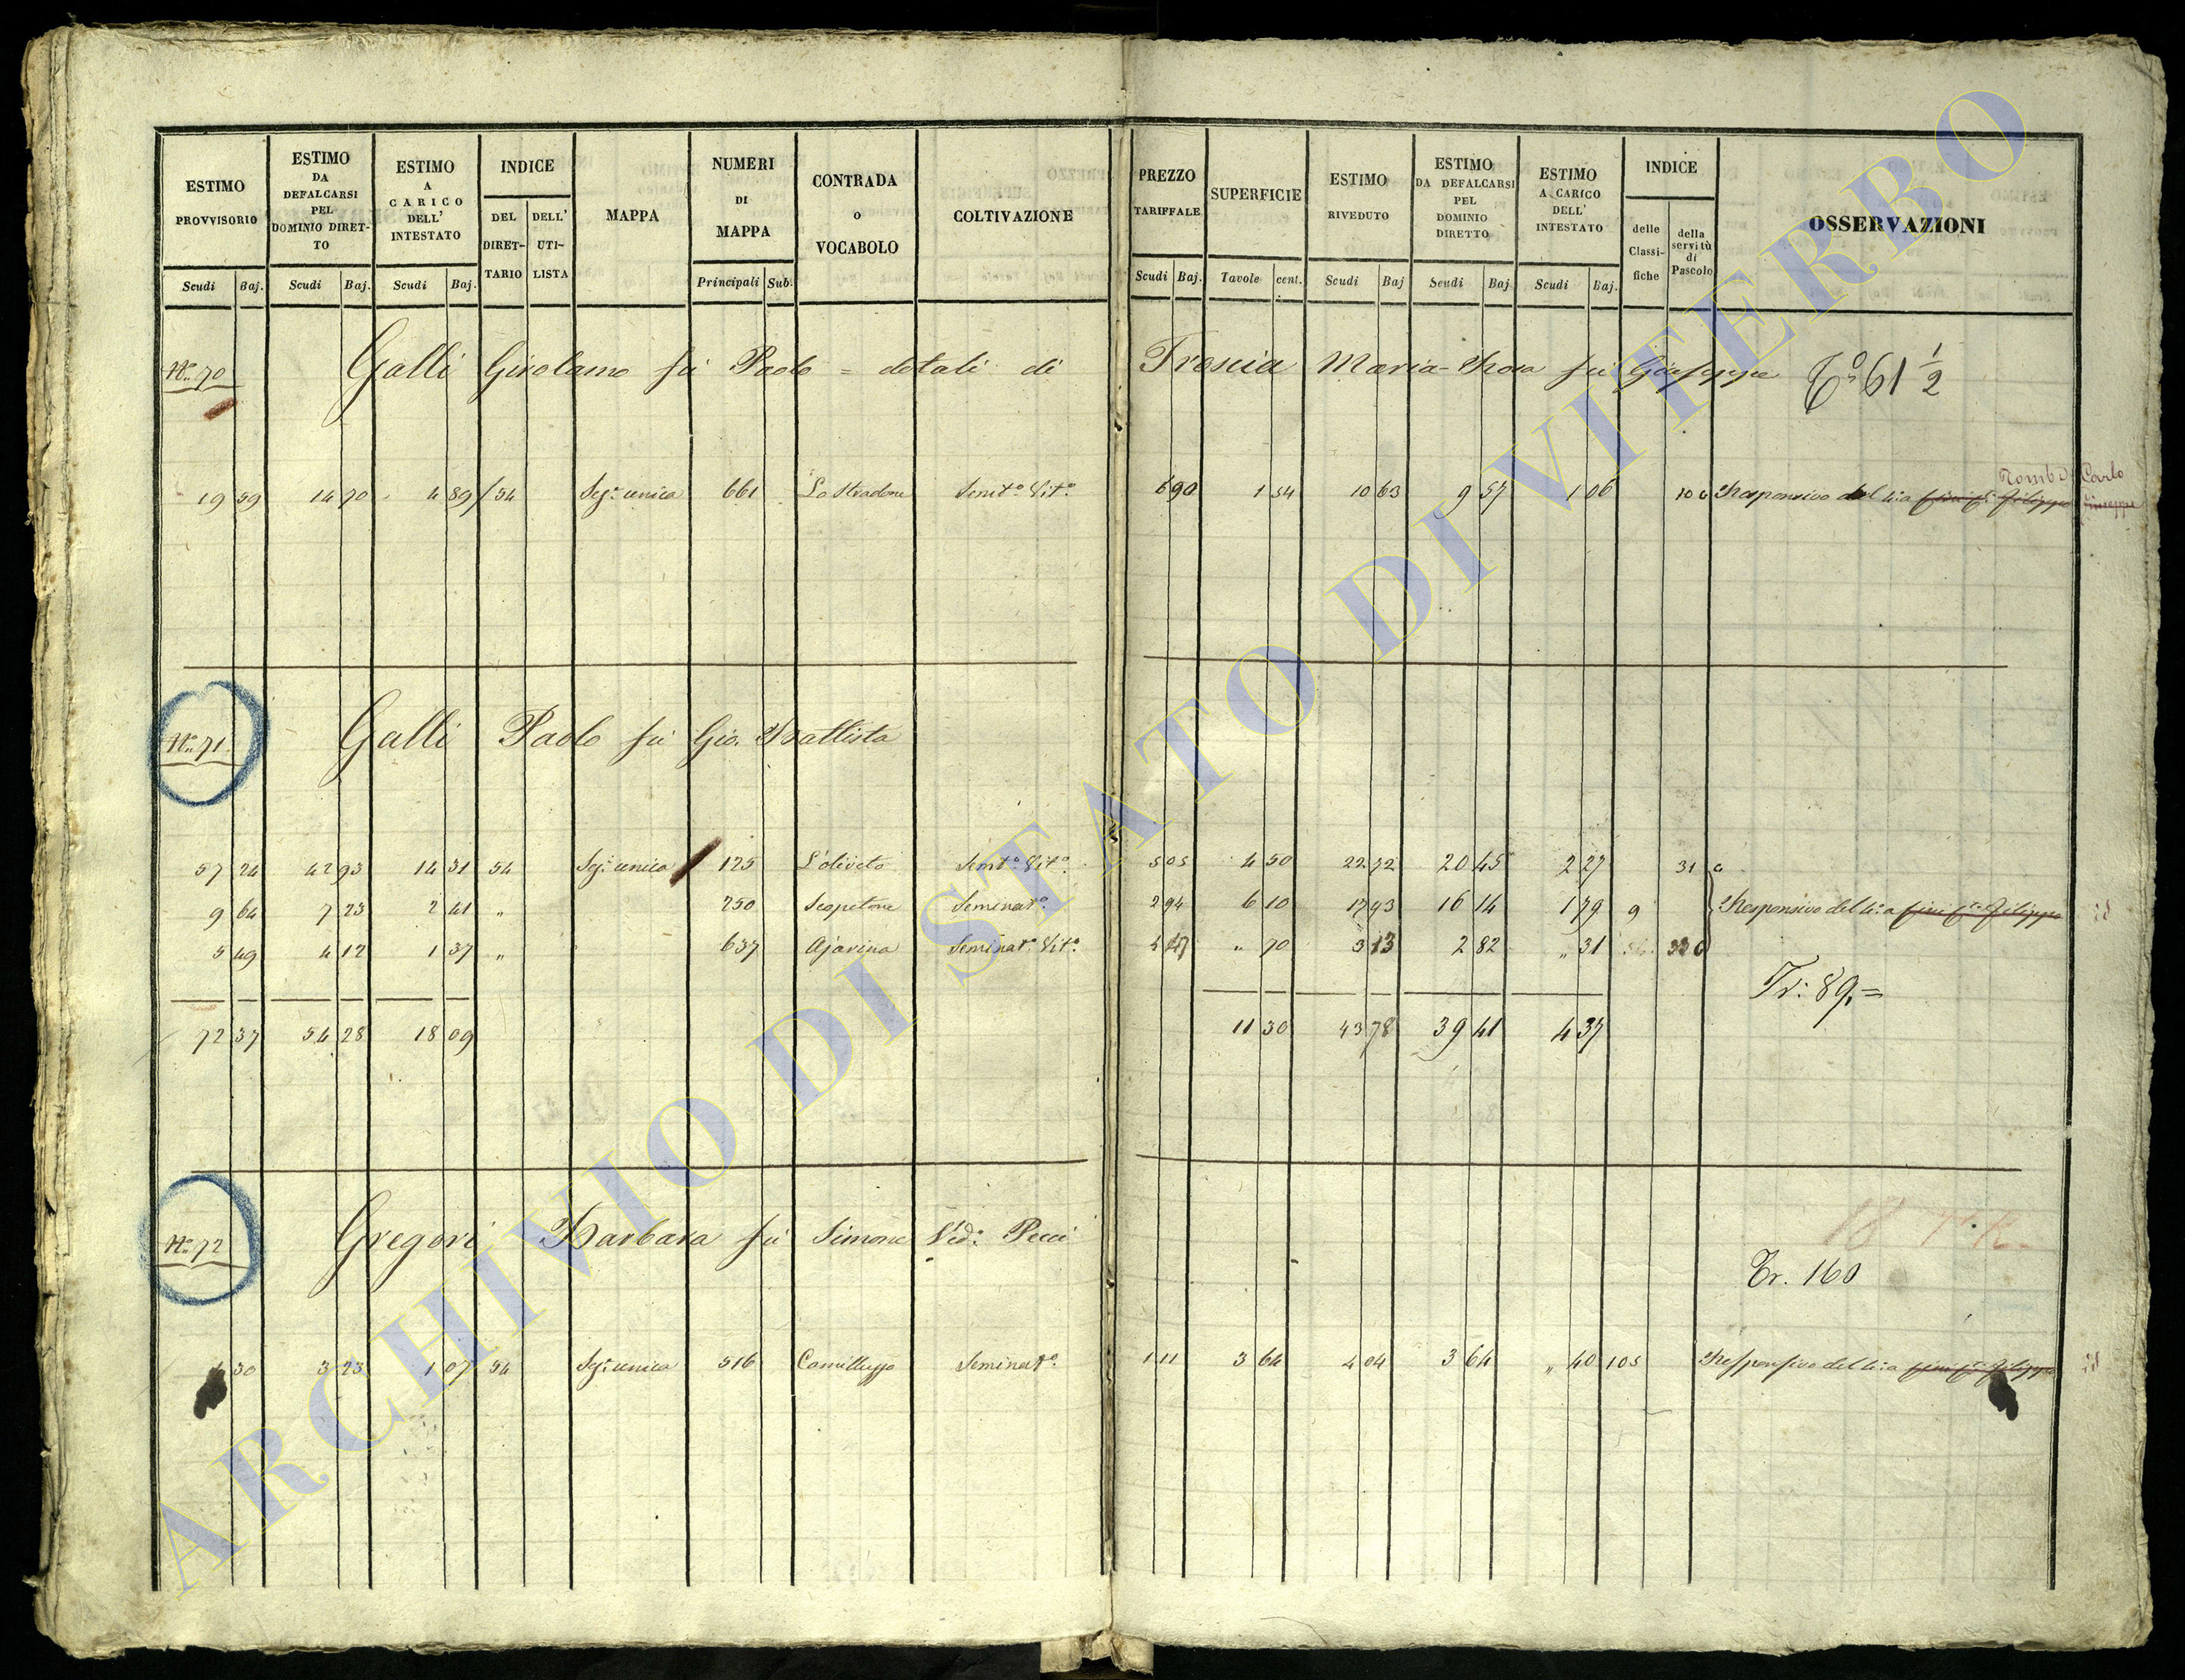 ESTIMO PROVVISORIO
ESTIMO DA DEFALCARSI PEL DOMINIO DIRETTO
ESTIMO A CARICO DELL' INTESTATO
INDICE
DEL DIRETTARIO
DELL' UTILISTA
MAPPA
NUMERI DI MAPPA
CONTRADA o VOCABOLO
COLTIVAZIONE
PREZZO TARIFFALE
SUPERFICIE
ESTIMO RIVEDUTO
ESTIMO DA DEFALCARSI PEL DOMINIO DIRETTO
ESTIMO A CARICO DELL' INTESTATO
INDICE
delle Classifiche
della servitù di Pascolo
OSSERVAZIONI
Scudi Baj. Scudi Baj. Scudi Baj. Principali Sub. Scudi Baj. Tavole cent. Scudi Baj Scudi Baj Scudi Baj.
No. 70 Galli Girolamo fù Paolo = dotali di Troscia Maria-Rosa fù Giuseppe 61 1/2
Carlo
19 59 14 70 4 89 54 Sez. unica 661 Lo Stradone Semto. Vito. 6 90 1 54 10 63 9 57 1 06 Responsivo del
Giuseppe
No. 71 Galli Paolo fù Gio. Battista
57 24 42 93 14 31 54 Sez. unica 125 L'oliveto Semto. Vito. 5 05 4 50 22 72 20 45 2 27 31
9 64 7 23 2 41 " 250 Scopetone Seminato. 2 94 6 10 17 93 16 14 1 79 9 Responsivo del Filippo id
5 49 4 12 1 37 " 637 Ajavina Seminat. Vito. 4 47 " 70 3 13 2 82 " 31
Tr: 89,=
72 37 54 28 18 09 11 30 43 78 39 41 4 37
No. 72 Gregori Barbara fù Simone Ved: Pecci
Tr. 160
30 3 23 1 07 54 Sez. unica 516 Camilluzzo Seminato. 1 11 3 64 4 04 3 64 " 40 105 Responsivo del Filippo id
ARCHIVIO DI STATO DI VITERBO